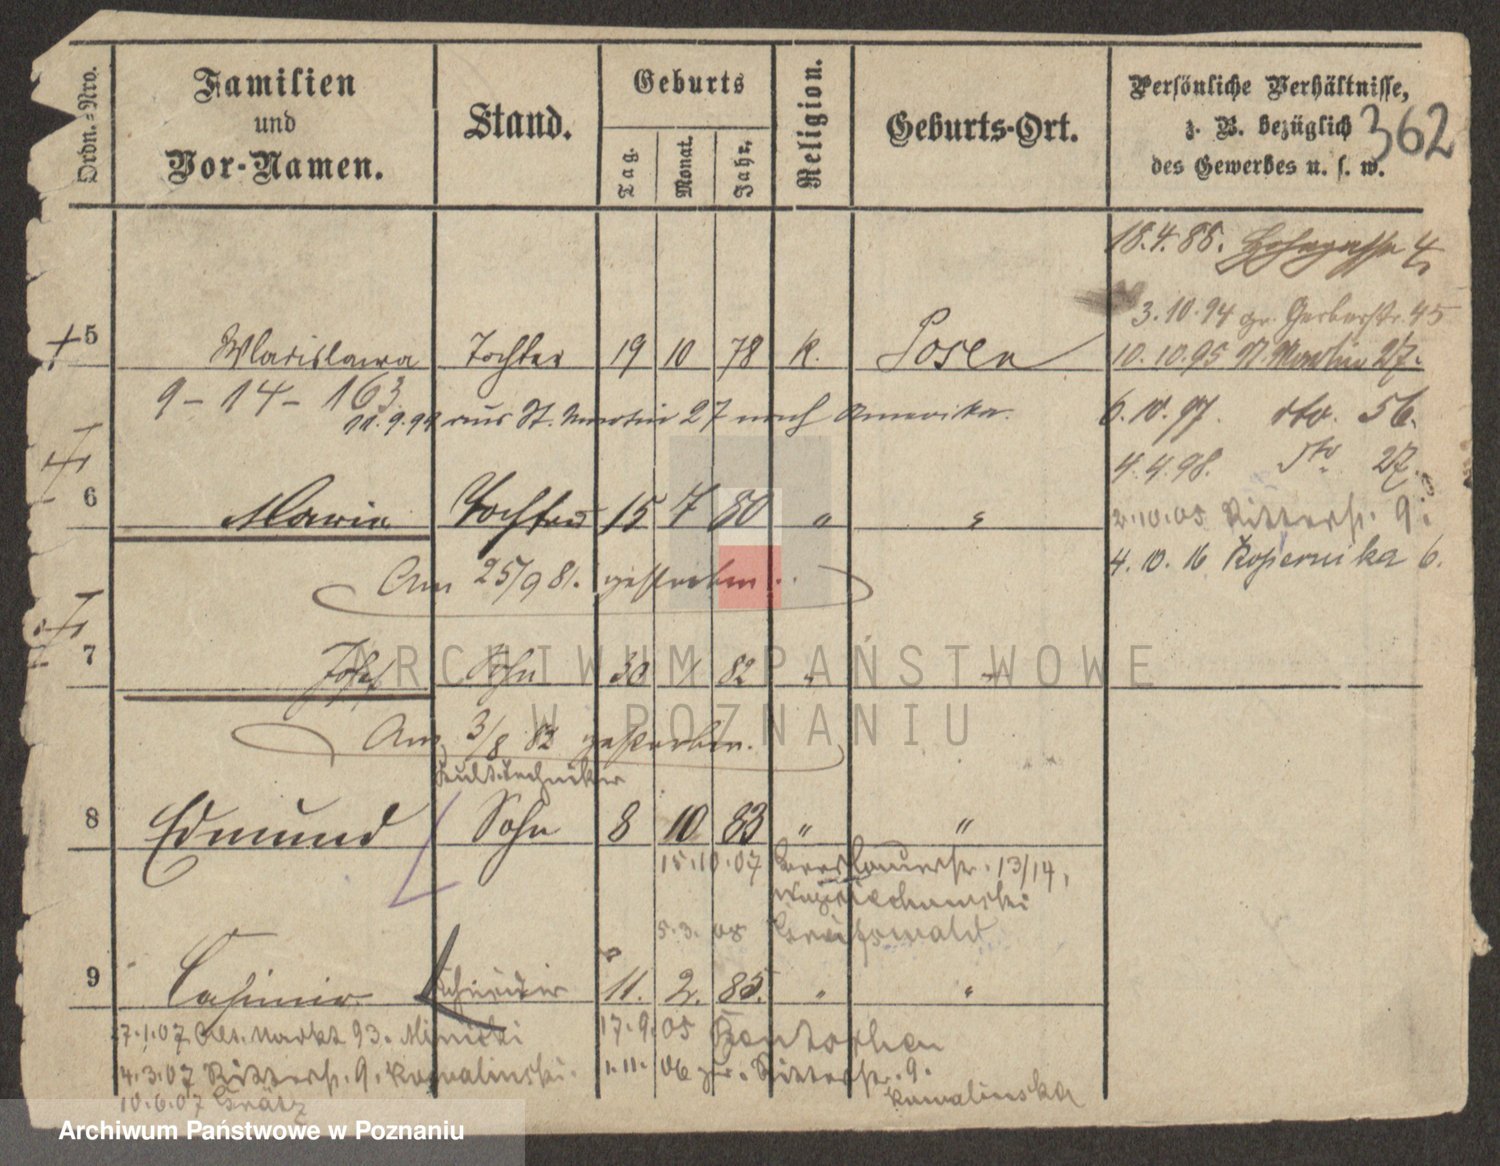 Ordn.-Nro.
Familien
und
Vor-Namen.
Stand.
Geburts
Tag.
Monat.
Jahr.
Religion.
Geburts-Ort.
Persönliche Verhältnisse,
z. B. bezüglich
des Gewerbes u. s. w.
362
18.4.88. 4
3.10.94 gr. Gerberstr. 45
5 Wladislawa Tochter 19 10 78 k. Posen
10.10.95 St. Martin 27.
9 - 14 - 163
11.9.99 aus St. Martin 27 nach Amerika.
6.10.97. dto. 56.
4.4.98. dto 27.
6 Maria Tochter 15 7 80 " "
2.10.05 Ritterst. 9.
4.10.16 Kopernika 6.
Am 25/9 81. gestorben.
7 Josef Sohn 30 1 82 " "
Am 3/8 82 gestorben.
Kulturtechniker
8 Edmund Sohn 8 10 83 " "
15.10.07 Breslauerstr. 13/14,
5.3.08 Greifswald
9 Casimir 11. 2. 85. " "
7.1.07 Alt. Markt 93.
17.9.05
4.3.07 Ritterst. 9. Kowalinski.
1.11.06 zur. Ritterstr. 9.
Kowalinska
10.6.07 Gratz
ARCHIWUM PAŃSTWOWE
W POZNANIU
Archiwum Państwowe w Poznaniu